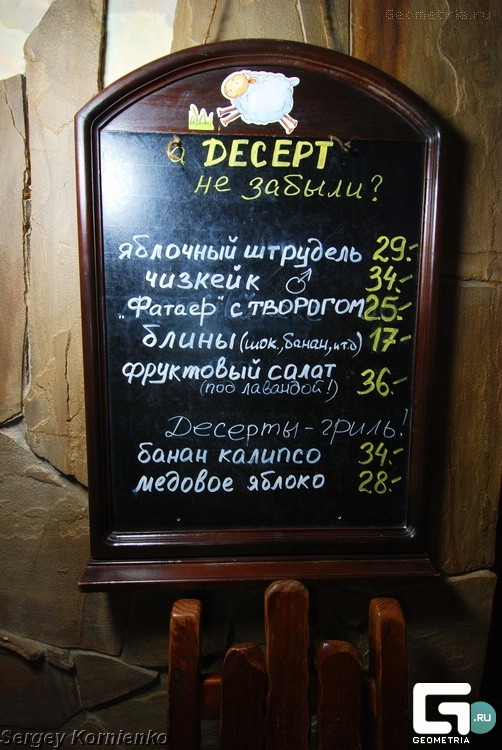 Geometria.ru
а ДЕСЕРТ
не забыли?
яблочный штрудель 29.-
чизкейк ♂ 34.-
„Фатаер" с творогом 25.-
блины (шок., банан, и т.д) 17.-
фруктовый салат
(под лавандой!) 36.-
Десерты-гриль!
банан калипсо 34.-
медовое яблоко 28.-
Sergey Kornienko
G .RU
GEOMETRIA